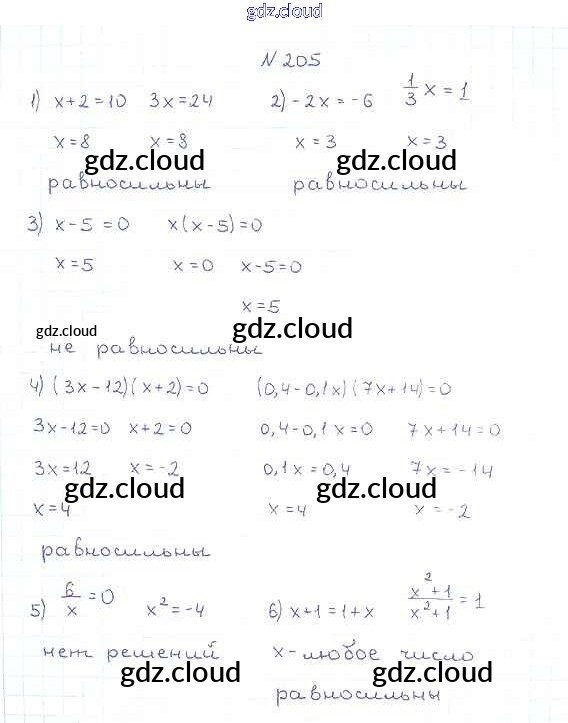 gdz.cloud
N 205
1) x+2=10 3x=24 2) -2x=-6 1/3 x = 1
x=8 x=8 x=3 x=3
gdz.cloud gdz.cloud
равносильны равносильны
3) x-5=0 x(x-5)=0
x=5 x=0 x-5=0
x=5
gdz.cloud gdz.cloud
не равносильны
4) (3x-12)(x+2)=0 (0,4-0,1x)(7x+14)=0
3x-12=0 x+2=0 0,4-0,1x=0 7x+14=0
3x=12 x=-2 0,1x=0,4 7x=-14
gdz.cloud gdz.cloud
x=4 x=4 x=-2
равносильны
5) 6/x=0 x²=-4 6) x+1=1+x (x²+1)/(x²+1)=1
нет решений x-любое число
gdz.cloud gdz.cloud
равносильны